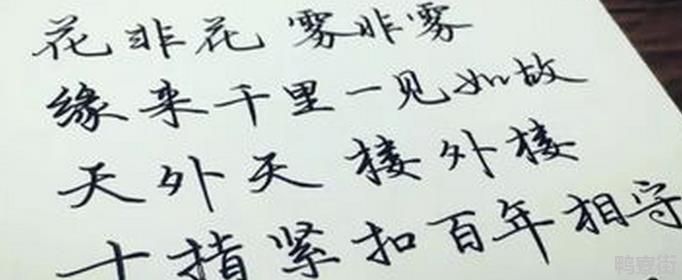 花非花 雾非雾
缘来千里一见如故
天外天 楼外楼
十指紧扣百年相守
鸭寮街